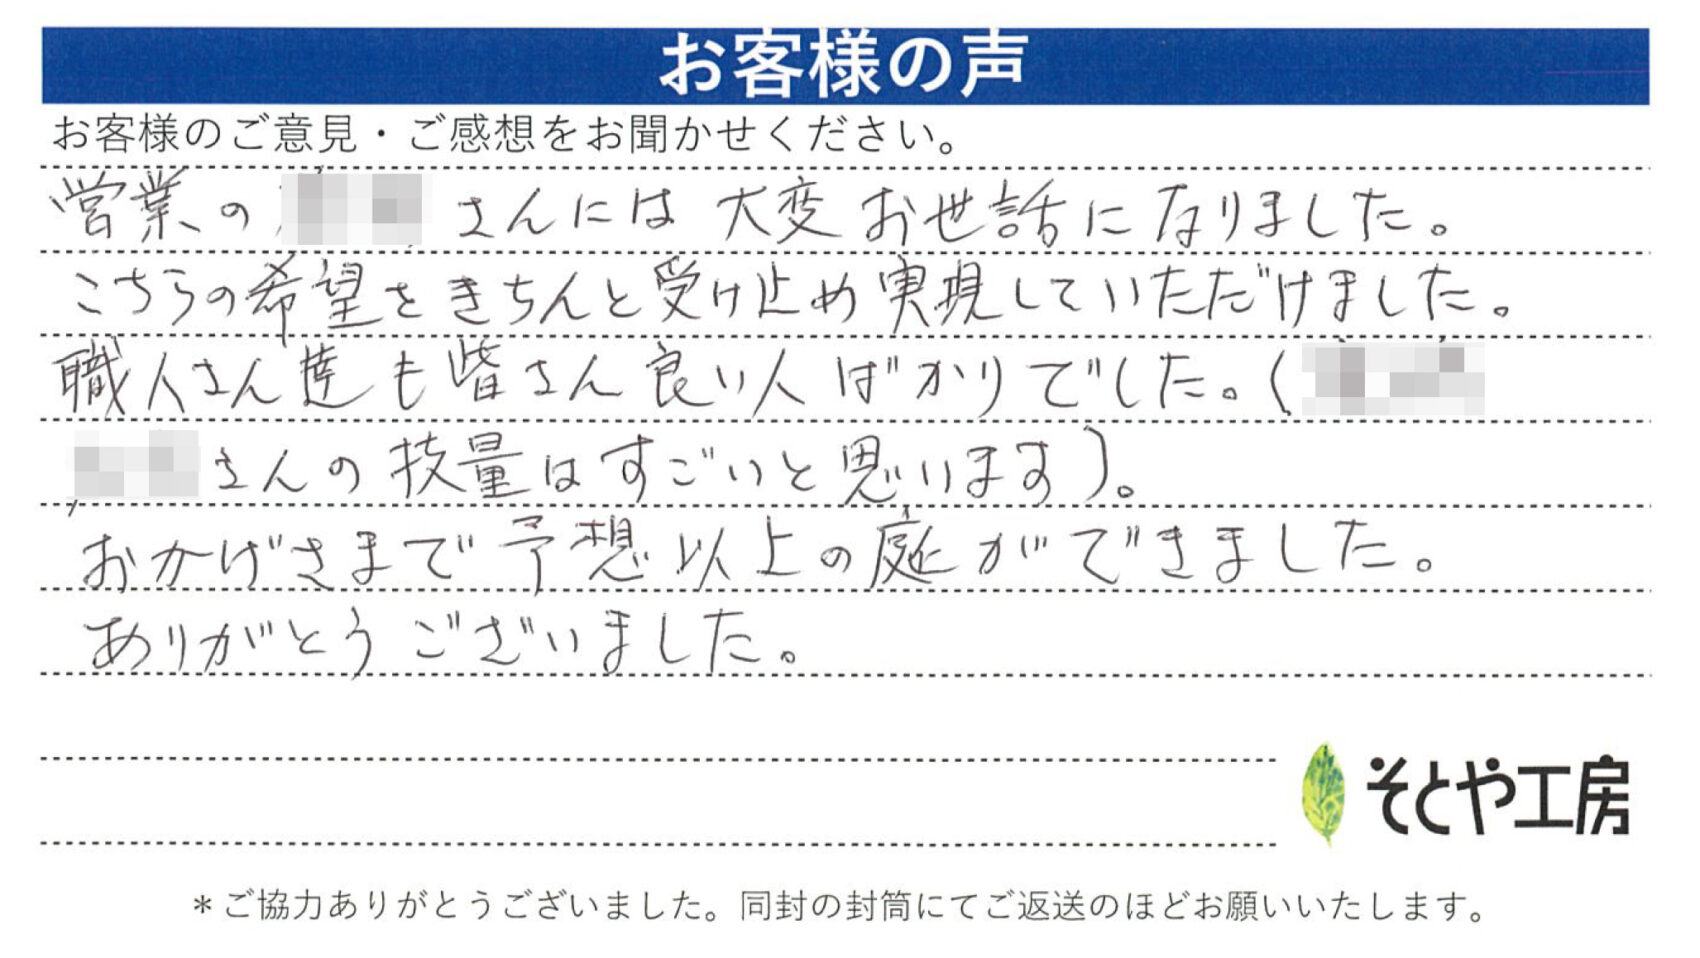 お客様の声
お客様のご意見・ご感想をお聞かせください。
営業の さんには大変お世話になりました。
こちらの希望をきちんと受け止め実現していただけました。
職人さん達も皆さん良い人ばかりでした。(
さんの技量はすごいと思います)。
おかげさまで予想以上の庭ができました。
ありがとうございました。
そとや工房
＊ご協力ありがとうございました。同封の封筒にてご返送のほどお願いいたします。